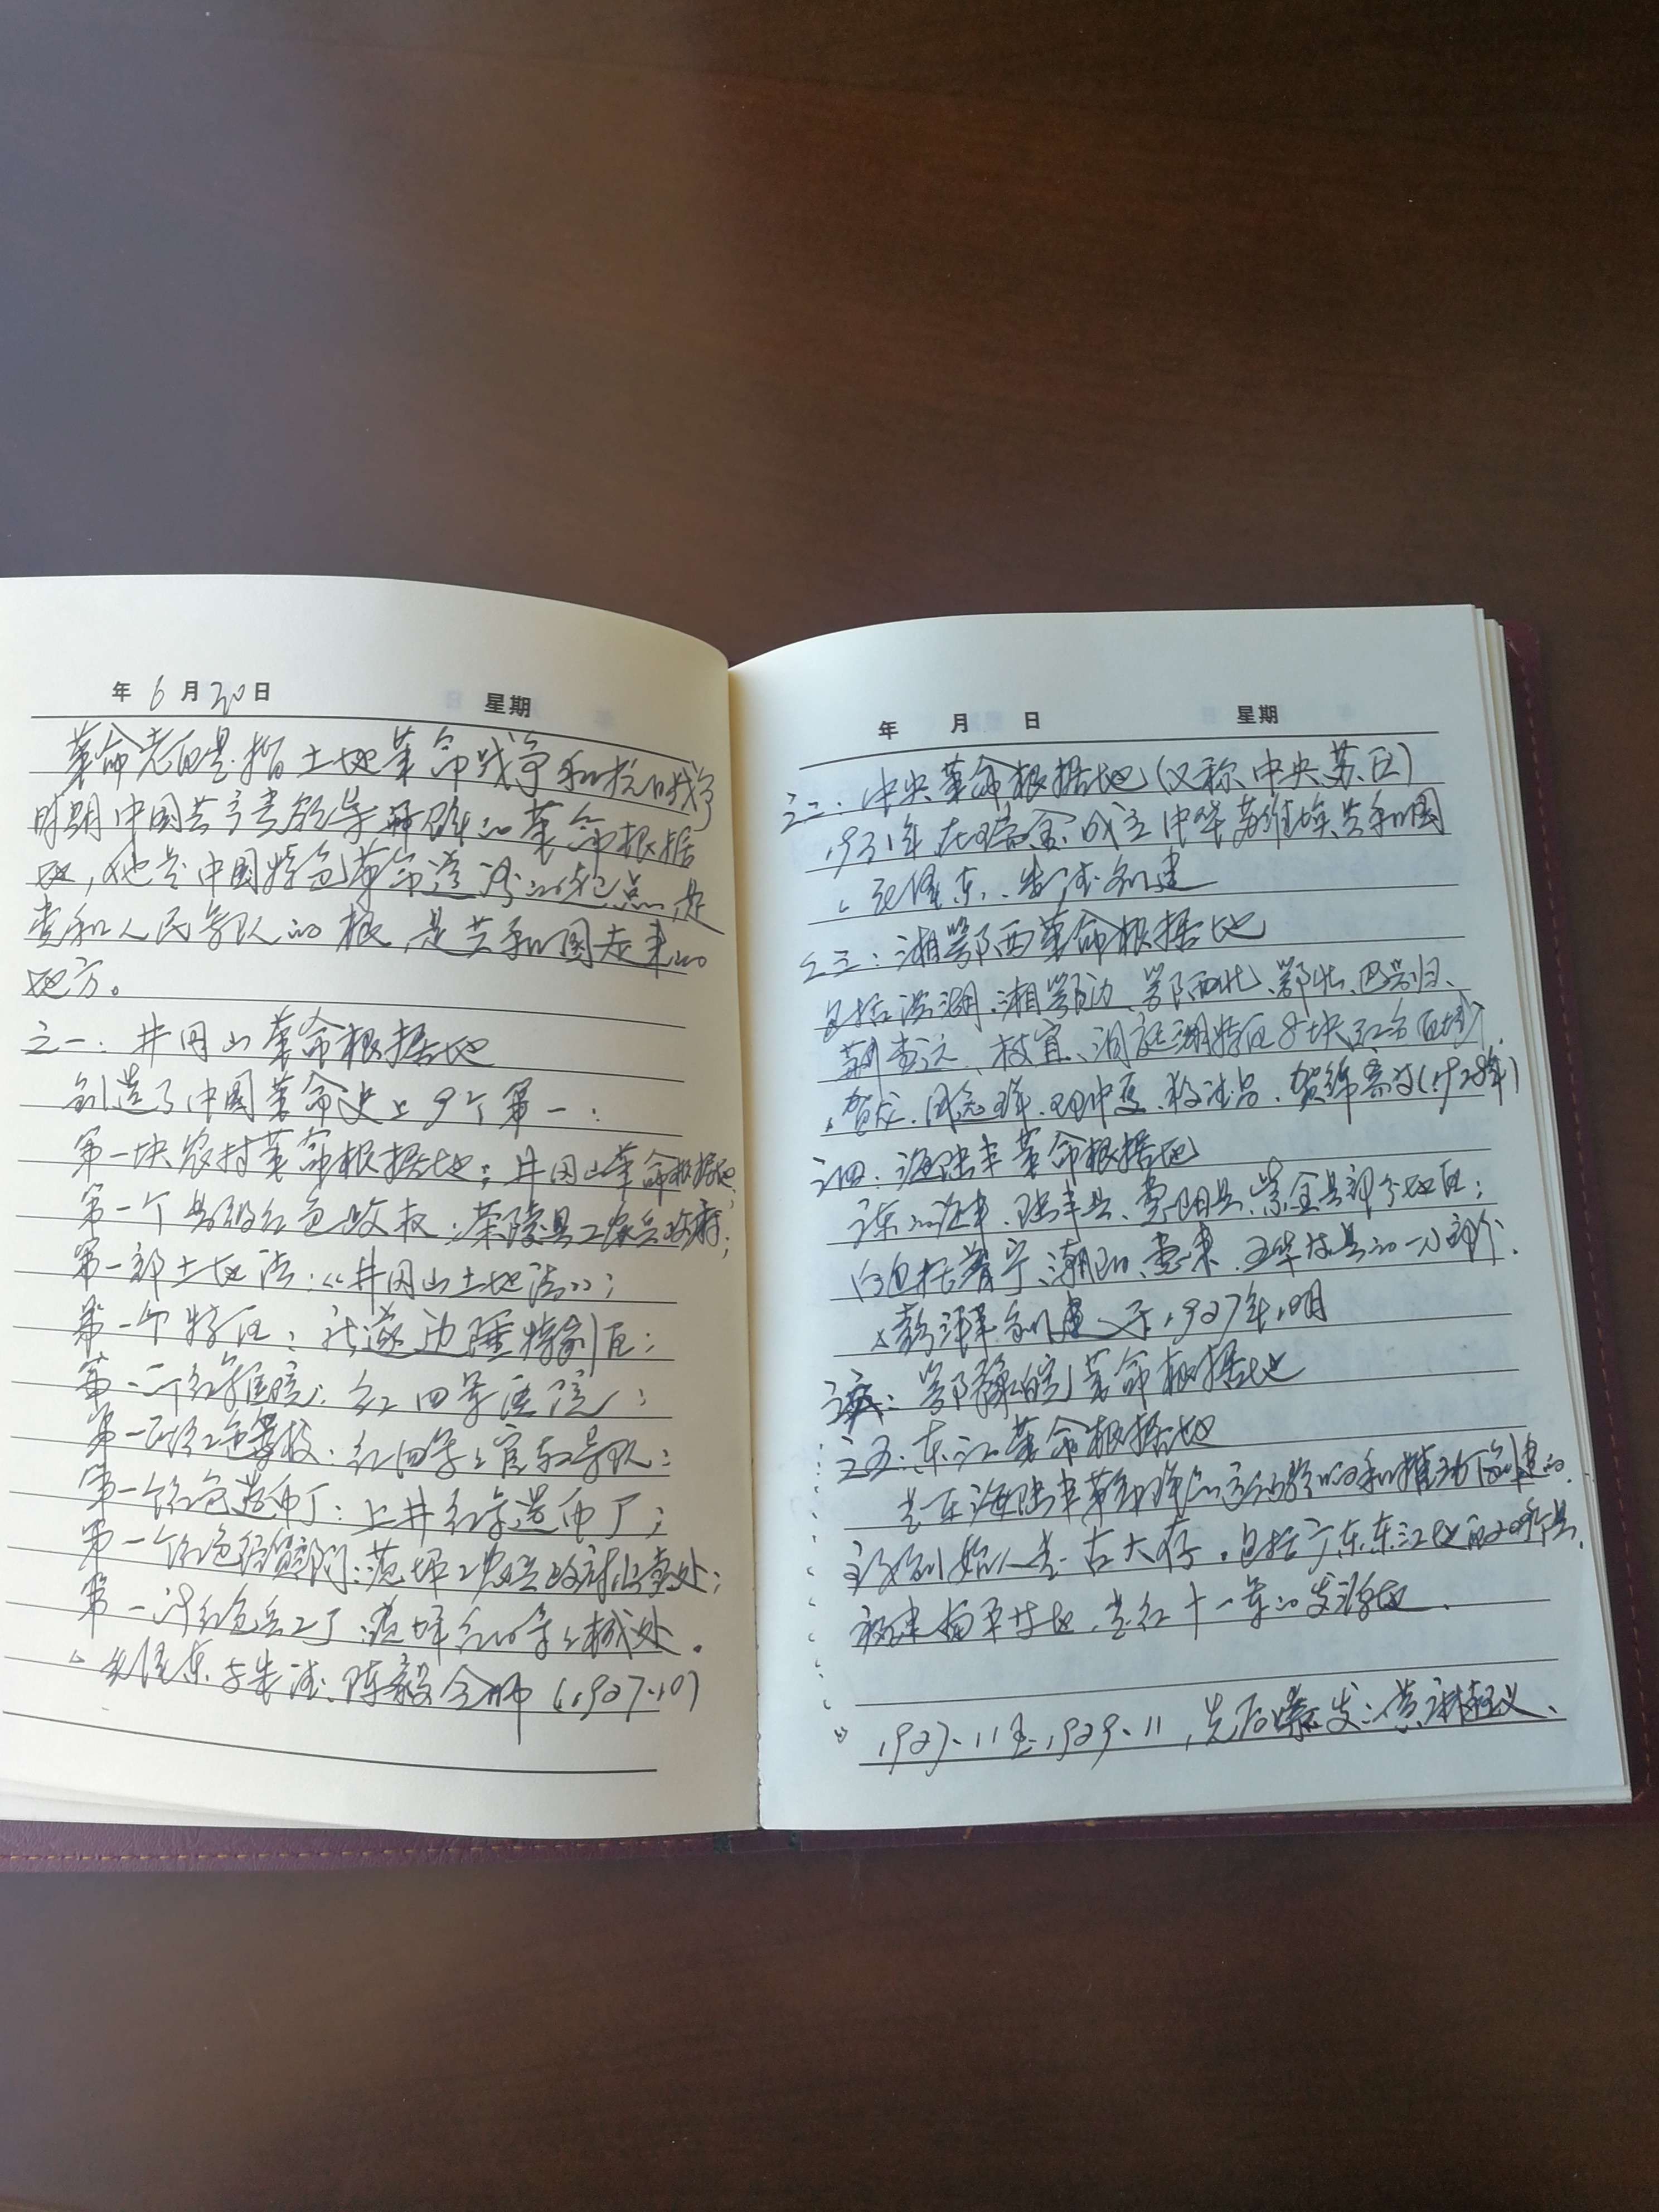 年 6 月 20 日 星期
革命老区是指土地革命战争和抗日战争
时期中国共产党领导开创的革命根据
地，她是中国特色革命道路的起点，是
党和人民军队的根，是共和国走来的
地方。
之一：井冈山革命根据地
创造了中国革命史上9个第一：
第一块农村革命根据地：井冈山革命根据地；
第一个县级红色政权：茶陵县工农兵政府；
第一部土地法：《井冈山土地法》；
第一个特区：遂边陲特别区；
第一个红军医院：红四军医院；
第一所红色军校：红四军军官教导队；
第一个红色造币厂：上井红军造币厂；
第一个红色经贸部门：茨坪工农兵政府公卖处；
第一所红色兵工厂：茨坪红四军军械处。
毛泽东与朱德、陈毅会师（1927.10）
年 月 日 星期
之二：中央革命根据地（又称中央苏区）
1931年在瑞金成立中华苏维埃共和国
毛泽东、朱德创建
之三：湘鄂西革命根据地
包括洪湖、湘鄂边、鄂西北、鄂北、巴兴归、
荆当远、枝宜、洞庭湖特区8块红色区域
贺龙、周逸群、邓中夏、段德昌、贺锦斋等（1928年）
之四：海陆丰革命根据地
广东的海丰、陆丰县、惠阳县、紫金县部分地区；
包括普宁、潮阳、惠来、五华等县的一小部分.
彭湃创建于1927年10月
鄂豫皖革命根据地
之五：东江革命根据地
是在海陆丰革命的影响和推动下创建的.
主要创始人是古大存，包括广东东江地区20个县.
福建南平等地，是红十一军的发源地.
1927.11至1929.11，先后爆发：黄麻起义、